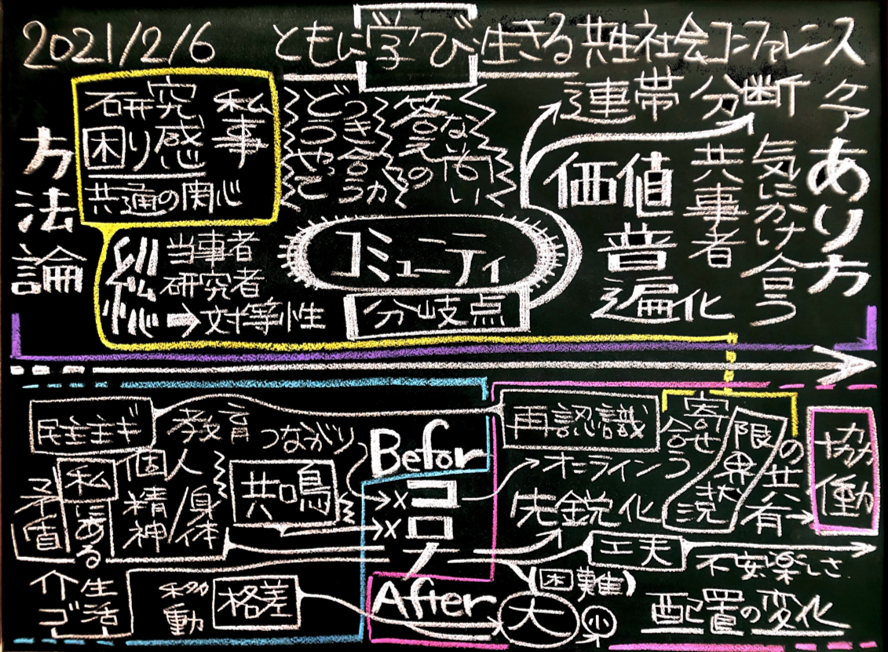 2021/2/6 ともに学び生きる共生社会コンファレンス
方法論
研究
困り感
私事
共通の関心
どうやって
つき合うか
答えのない問い
連帯
分断
ケア
あり方
価値
普遍化
共事者
気にかけ合う
当事者
研究者
→対等性
コミュニティ
分岐点
民主主ギ
教育
つながり
Befor
再認識
寄せ合う
限界状況
の共有
協働
私にある
個人
精神/身体
共鳴
コロナ
オンライン
先鋭化
工夫
不安
楽しさ
生活
移動
格差
After
困難
大
小
配置の変化